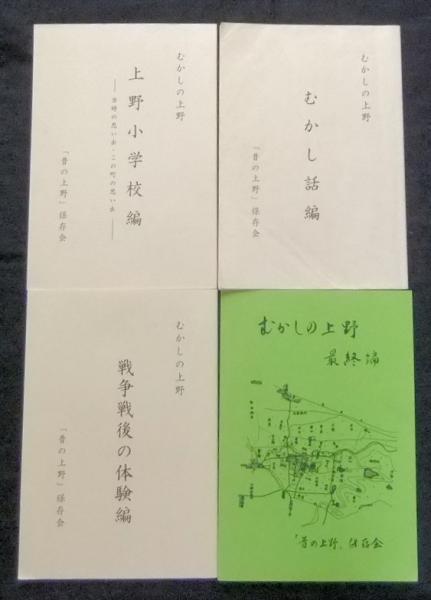 むかしの上野
上野小学校編
――当時の思い出・この町の思い出――
「昔の上野」保存会
むかしの上野
むかし話編
「昔の上野」保存会
むかしの上野
戦争戦後の体験編
「昔の上野」保存会
むかしの上野
最終編
「昔の上野」保存会